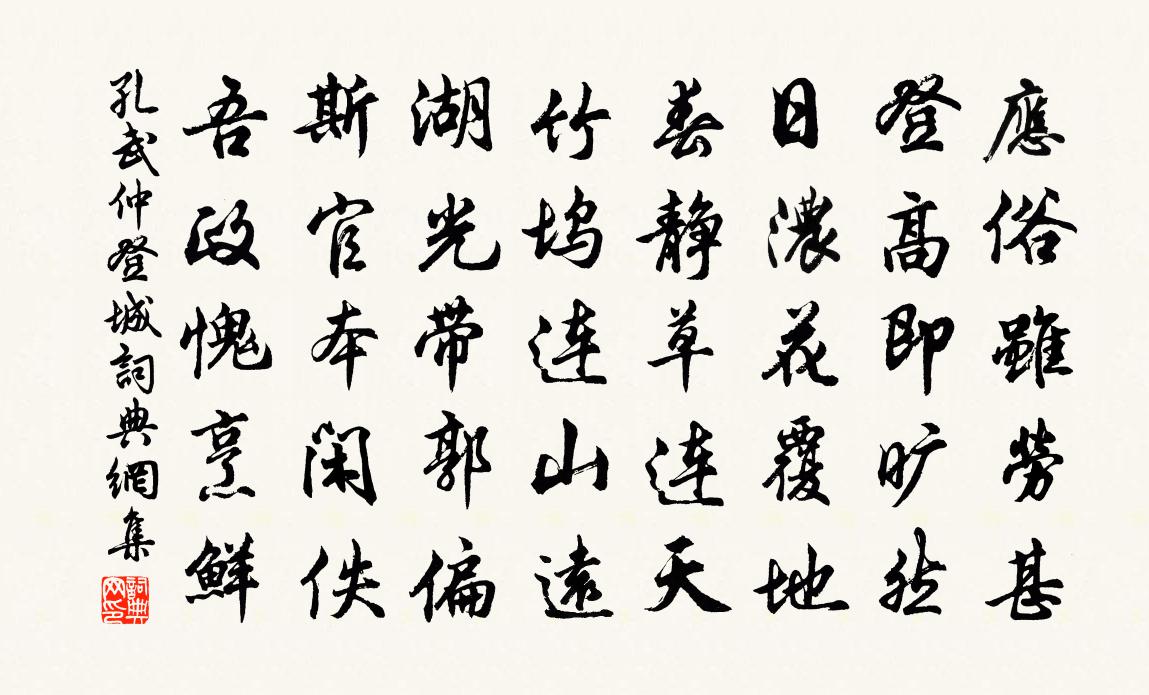 應俗雖勞甚
登高即旷然
日濃花覆地
春靜草连天
竹坞连山遠
湖光带郭偏
斯官本闲佚
吾政愧烹鮮
孔武仲登城詞典網集
詞典